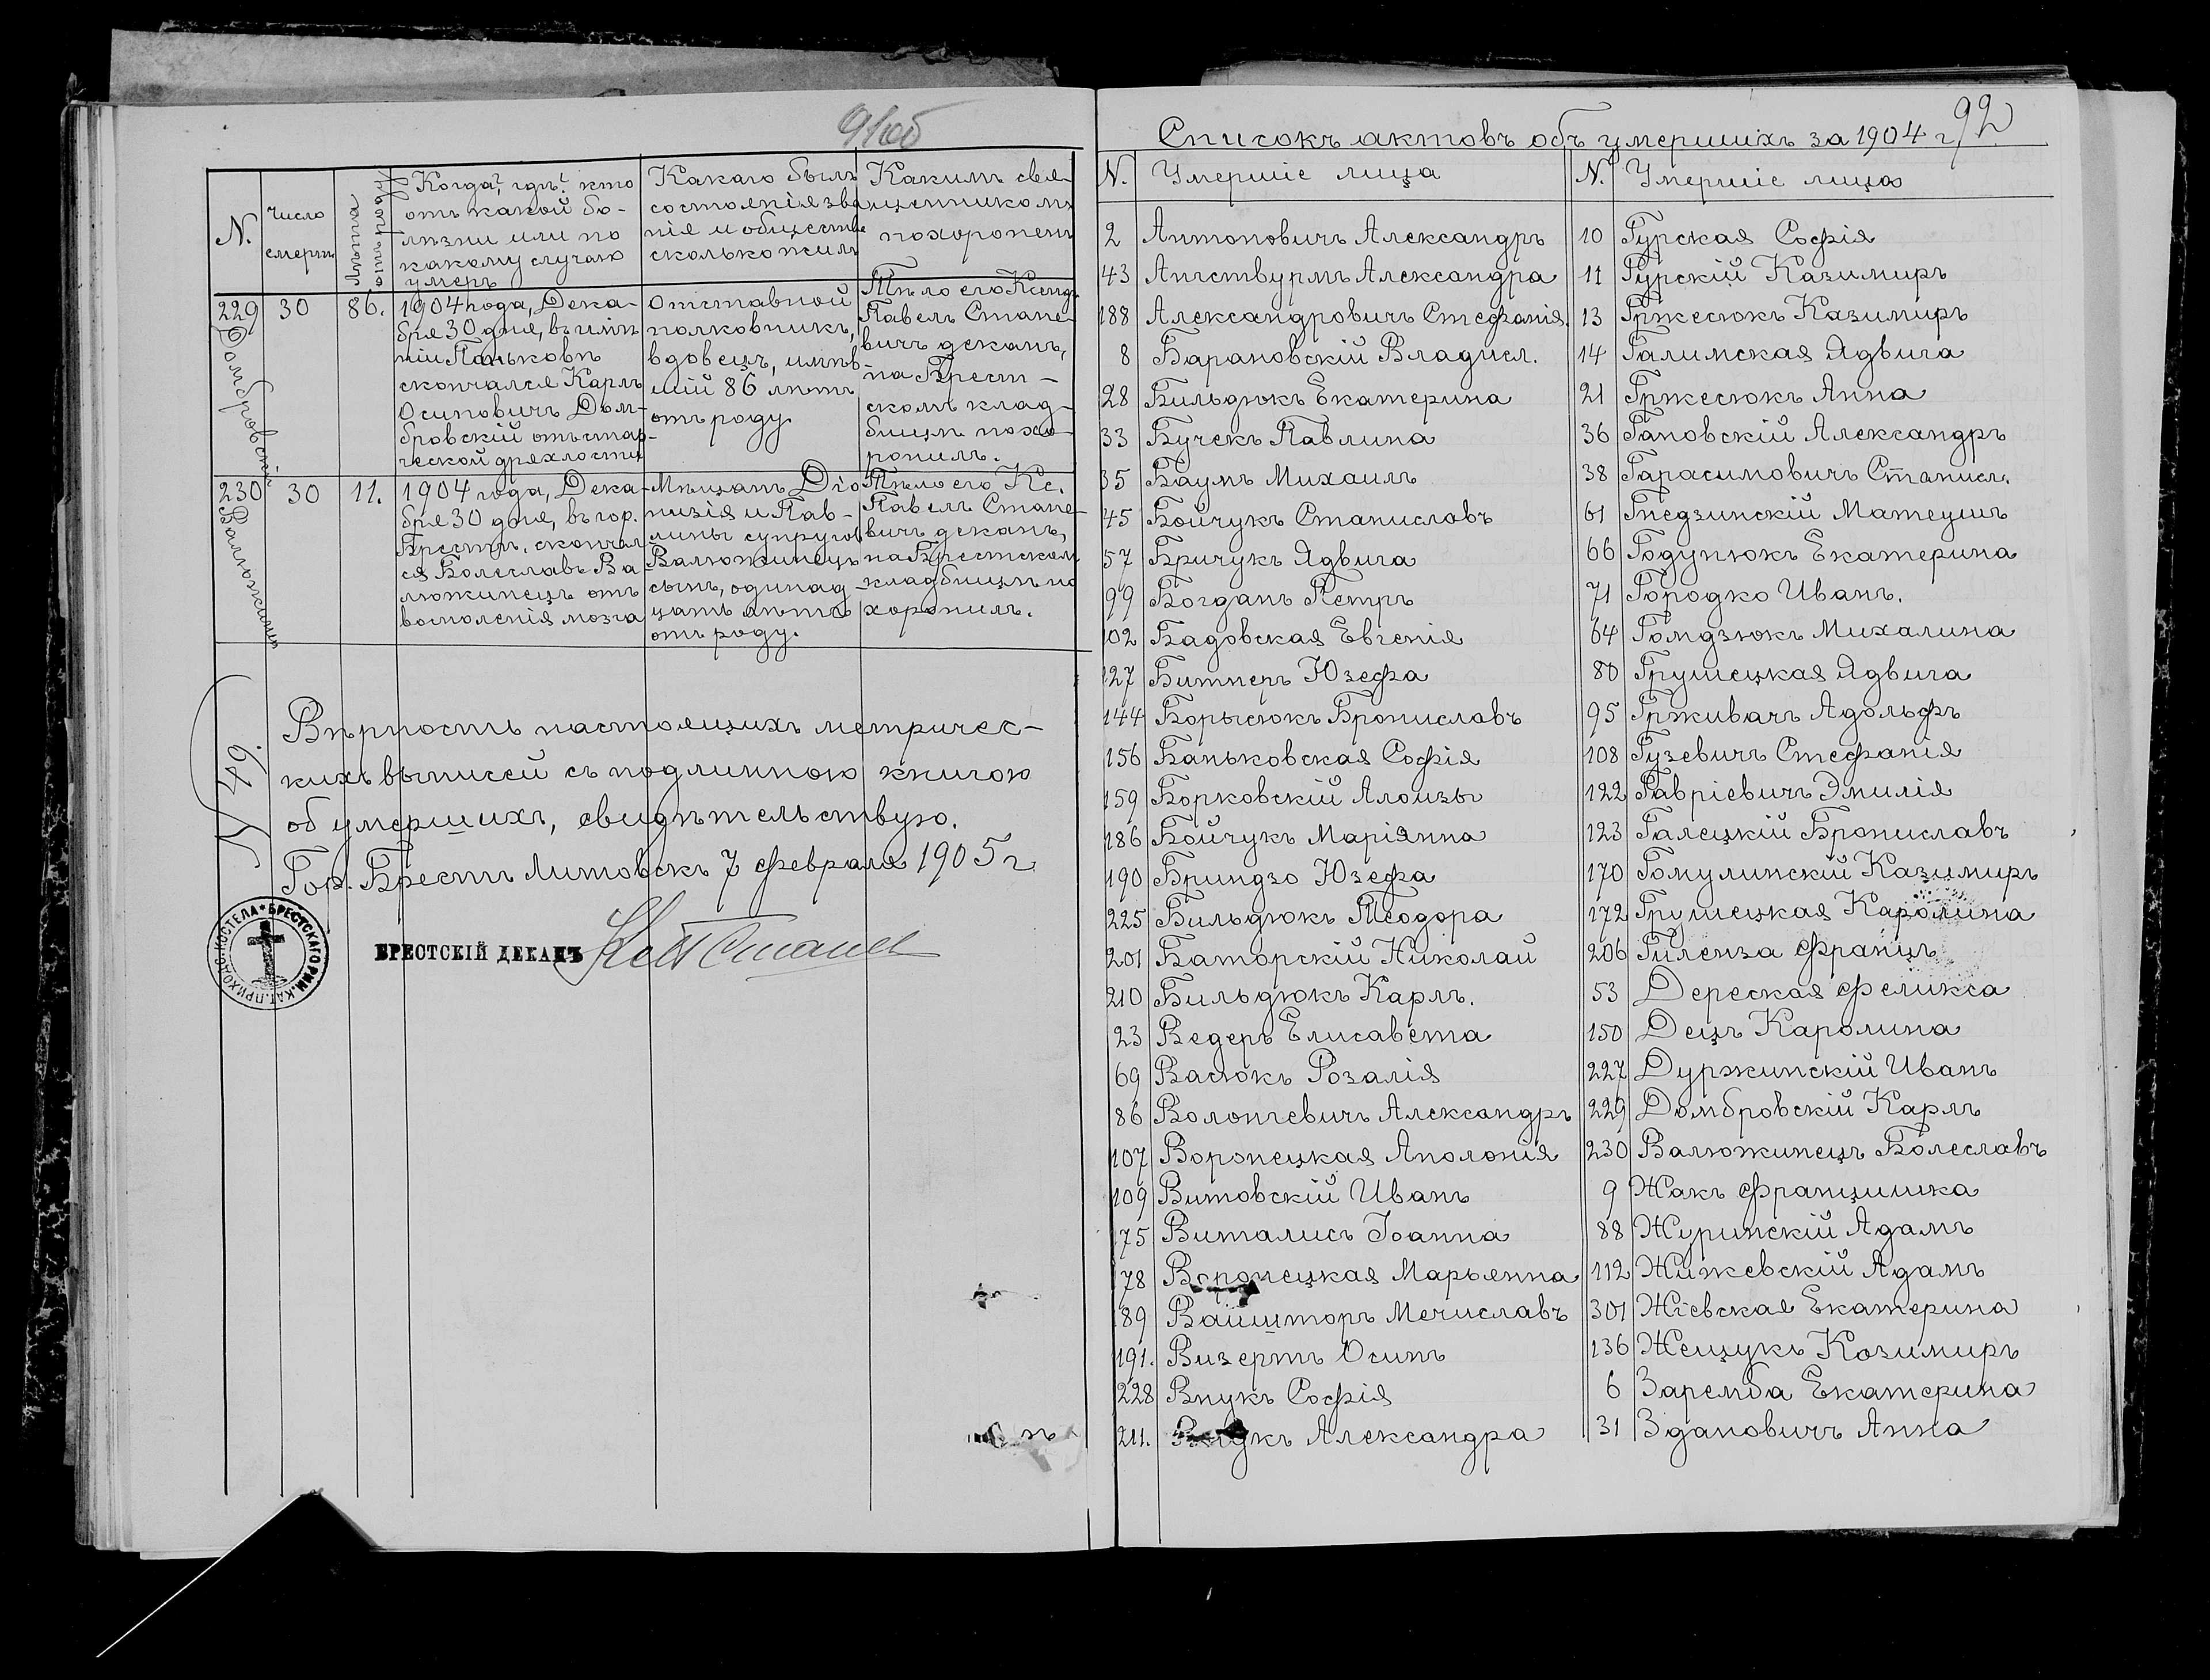 91 об
N.
Число
смерти
Когда?, гдѣ? кто
отъ какой бо-
лѣзни или по
какому случаю
умеръ
Какаго былъ
состоянія зва
нія и общества
сколько жилъ
Какимъ свя-
щенникомъ
похороненъ
229
Домбровскій
30
86.
1904 года, Дека-
бря 30 дня, въ имѣ
ніи Паньковѣ
скончался Карлъ
Осиповичъ Дом-
бровскій отъ стар-
ческой дряхлости
Отставной
полковникъ,
вдовецъ, имѣв-
шій 86 лѣтъ
отъ роду
Тѣло его Ксендз
Павелъ Стане-
вичъ деканъ,
на Брест-
скомъ клад-
бищѣ похо-
ронилъ.
230
Валюжинецъ
30
11.
1904 года, Дека-
бря 30 дня, въ гор.
Брестѣ, скончал
ся Болеславъ Ва
люжинецъ отъ
воспаленія мозга
Мѣщанъ Діо
низія и Пав-
лины супругов
Валюжинецъ
сынъ, одинад-
цать лѣтъ
отъ роду.
Тѣло его Кс.
Павелъ Стане-
вичъ деканъ,
на Брестском
кладбищѣ по
хоронилъ.
N 49.
Вѣрность настоящихъ метричес-
кихъ выписей съ подлинною книгою
об умершихъ, свидѣтельствую.
Гор. Брестъ Литовскъ 7 февраля 1905 г
БРЕСТСКАГО РИМ. КАТ. ПРИХОД. КОСТЕЛА
БРЕСТСКІЙ ДЕКАНЪ
92
Списокъ актовъ объ умершихъ за 1904 г.
N. Умершіе лица
2 Антоновичъ Александръ
43 Ангствурмъ Александра
188 Александровичъ Стефанія.
8 Барановскій Владисл.
28 Бильдюкъ Екатерина
33 Бучекъ Павлина
35 Баумъ Михаилъ
45 Бойчукъ Станиславъ
57 Бричукъ Ядвига
99 Богданъ Петръ
102 Бадовская Евгенія
127 Битнеръ Юзефа
144 Борысюкъ Брониславъ
156 Баньковская Софія
159 Борковскій Алоизы
186 Бойчукъ Маріянна
190 Бриндзо Юзефа
225 Бильдюкъ Теодора
201 Баторскій Николай
210 Бильдюкъ Карлъ.
23 Ведеръ Елисавета
69 Васюкъ Розалія
86 Волонгевичъ Александръ
107 Воронецкая Аполонія
109 Витовскій Иванъ
175 Виталисъ Іоанна
178 Воронецкая Марьянна
189 Вайшторъ Мечиславъ
191. Визертъ Осипъ
228 Внукъ Софія
211. Александра
N. Умершіе лица
10 Гурская Софія
11 Гурскій Казимиръ
13 Гржесюкъ Казимиръ
14 Галимская Ядвига
21 Гржесюкъ Анна
36 Гановскій Александръ
38 Гарасимовичъ Станисл.
61 Гнедзинскій Матеушъ
66 Годунюкъ Екатерина
71 Городко Иванъ.
64 Гомдзюкъ Михалина
80 Грушецкая Ядвига
95 Грживачъ Адольфъ
108 Гузевичъ Стефанія
122 Гавріевичъ Эмилія
123 Галецкій Брониславъ
170 Гомулинскій Казимиръ
172 Грушецкая Каролина
206 Гиленза Францъ
53 Дереская Феликса
150 Децъ Каролина
227 Дуржинскій Иванъ
229 Домбровскій Карлъ
230 Валюжинецъ Болеславъ
9 Жакъ Францишка
88 Журинскій Адамъ
112 Жижевскій Адамъ
301 Жіевская Екатерина
136 Жещукъ Козимиръ
6 Заремба Екатерина
31 Здановичъ Анна